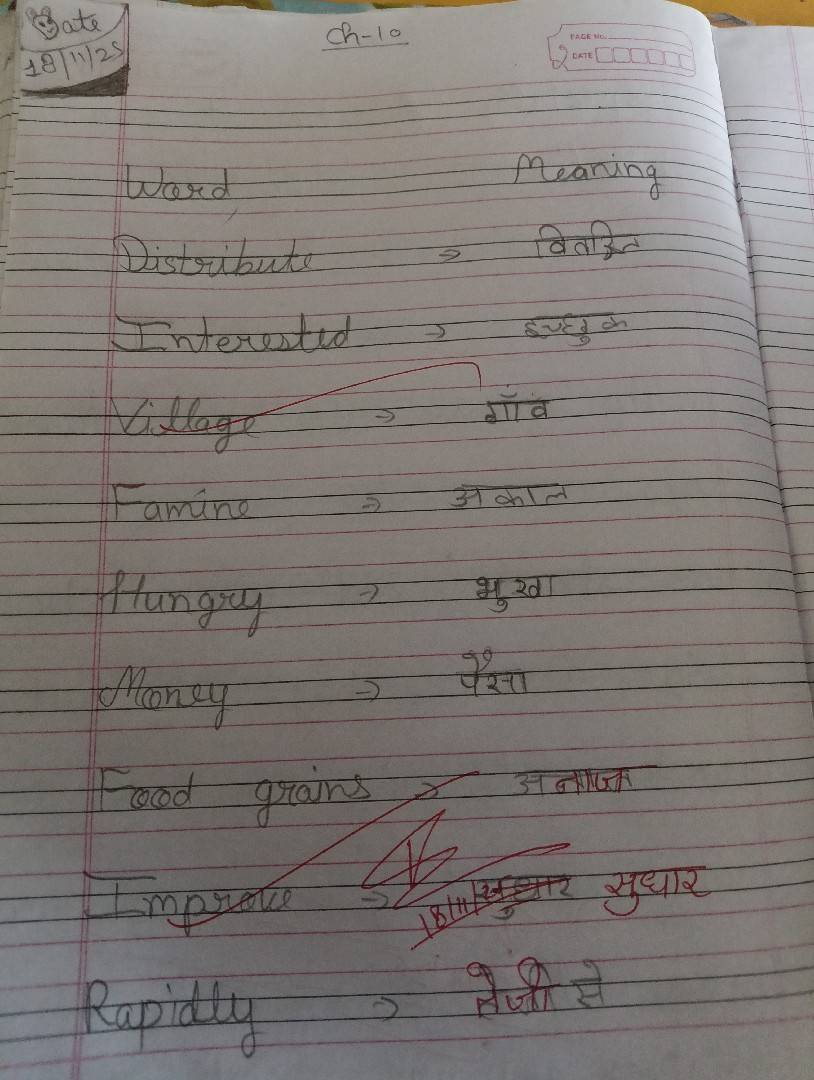 Date
18/11/25
Ch-10
PAGE NO.
DATE
Word Meaning
Distribute → वितरित
Interested → इच्छुक
Village → गाँव
Famine → अकाल
Hungry → भुखा
Money → पैसा
Food grains → अनाज
Improve → सुधार
18/11
Rapidly → तेजी से